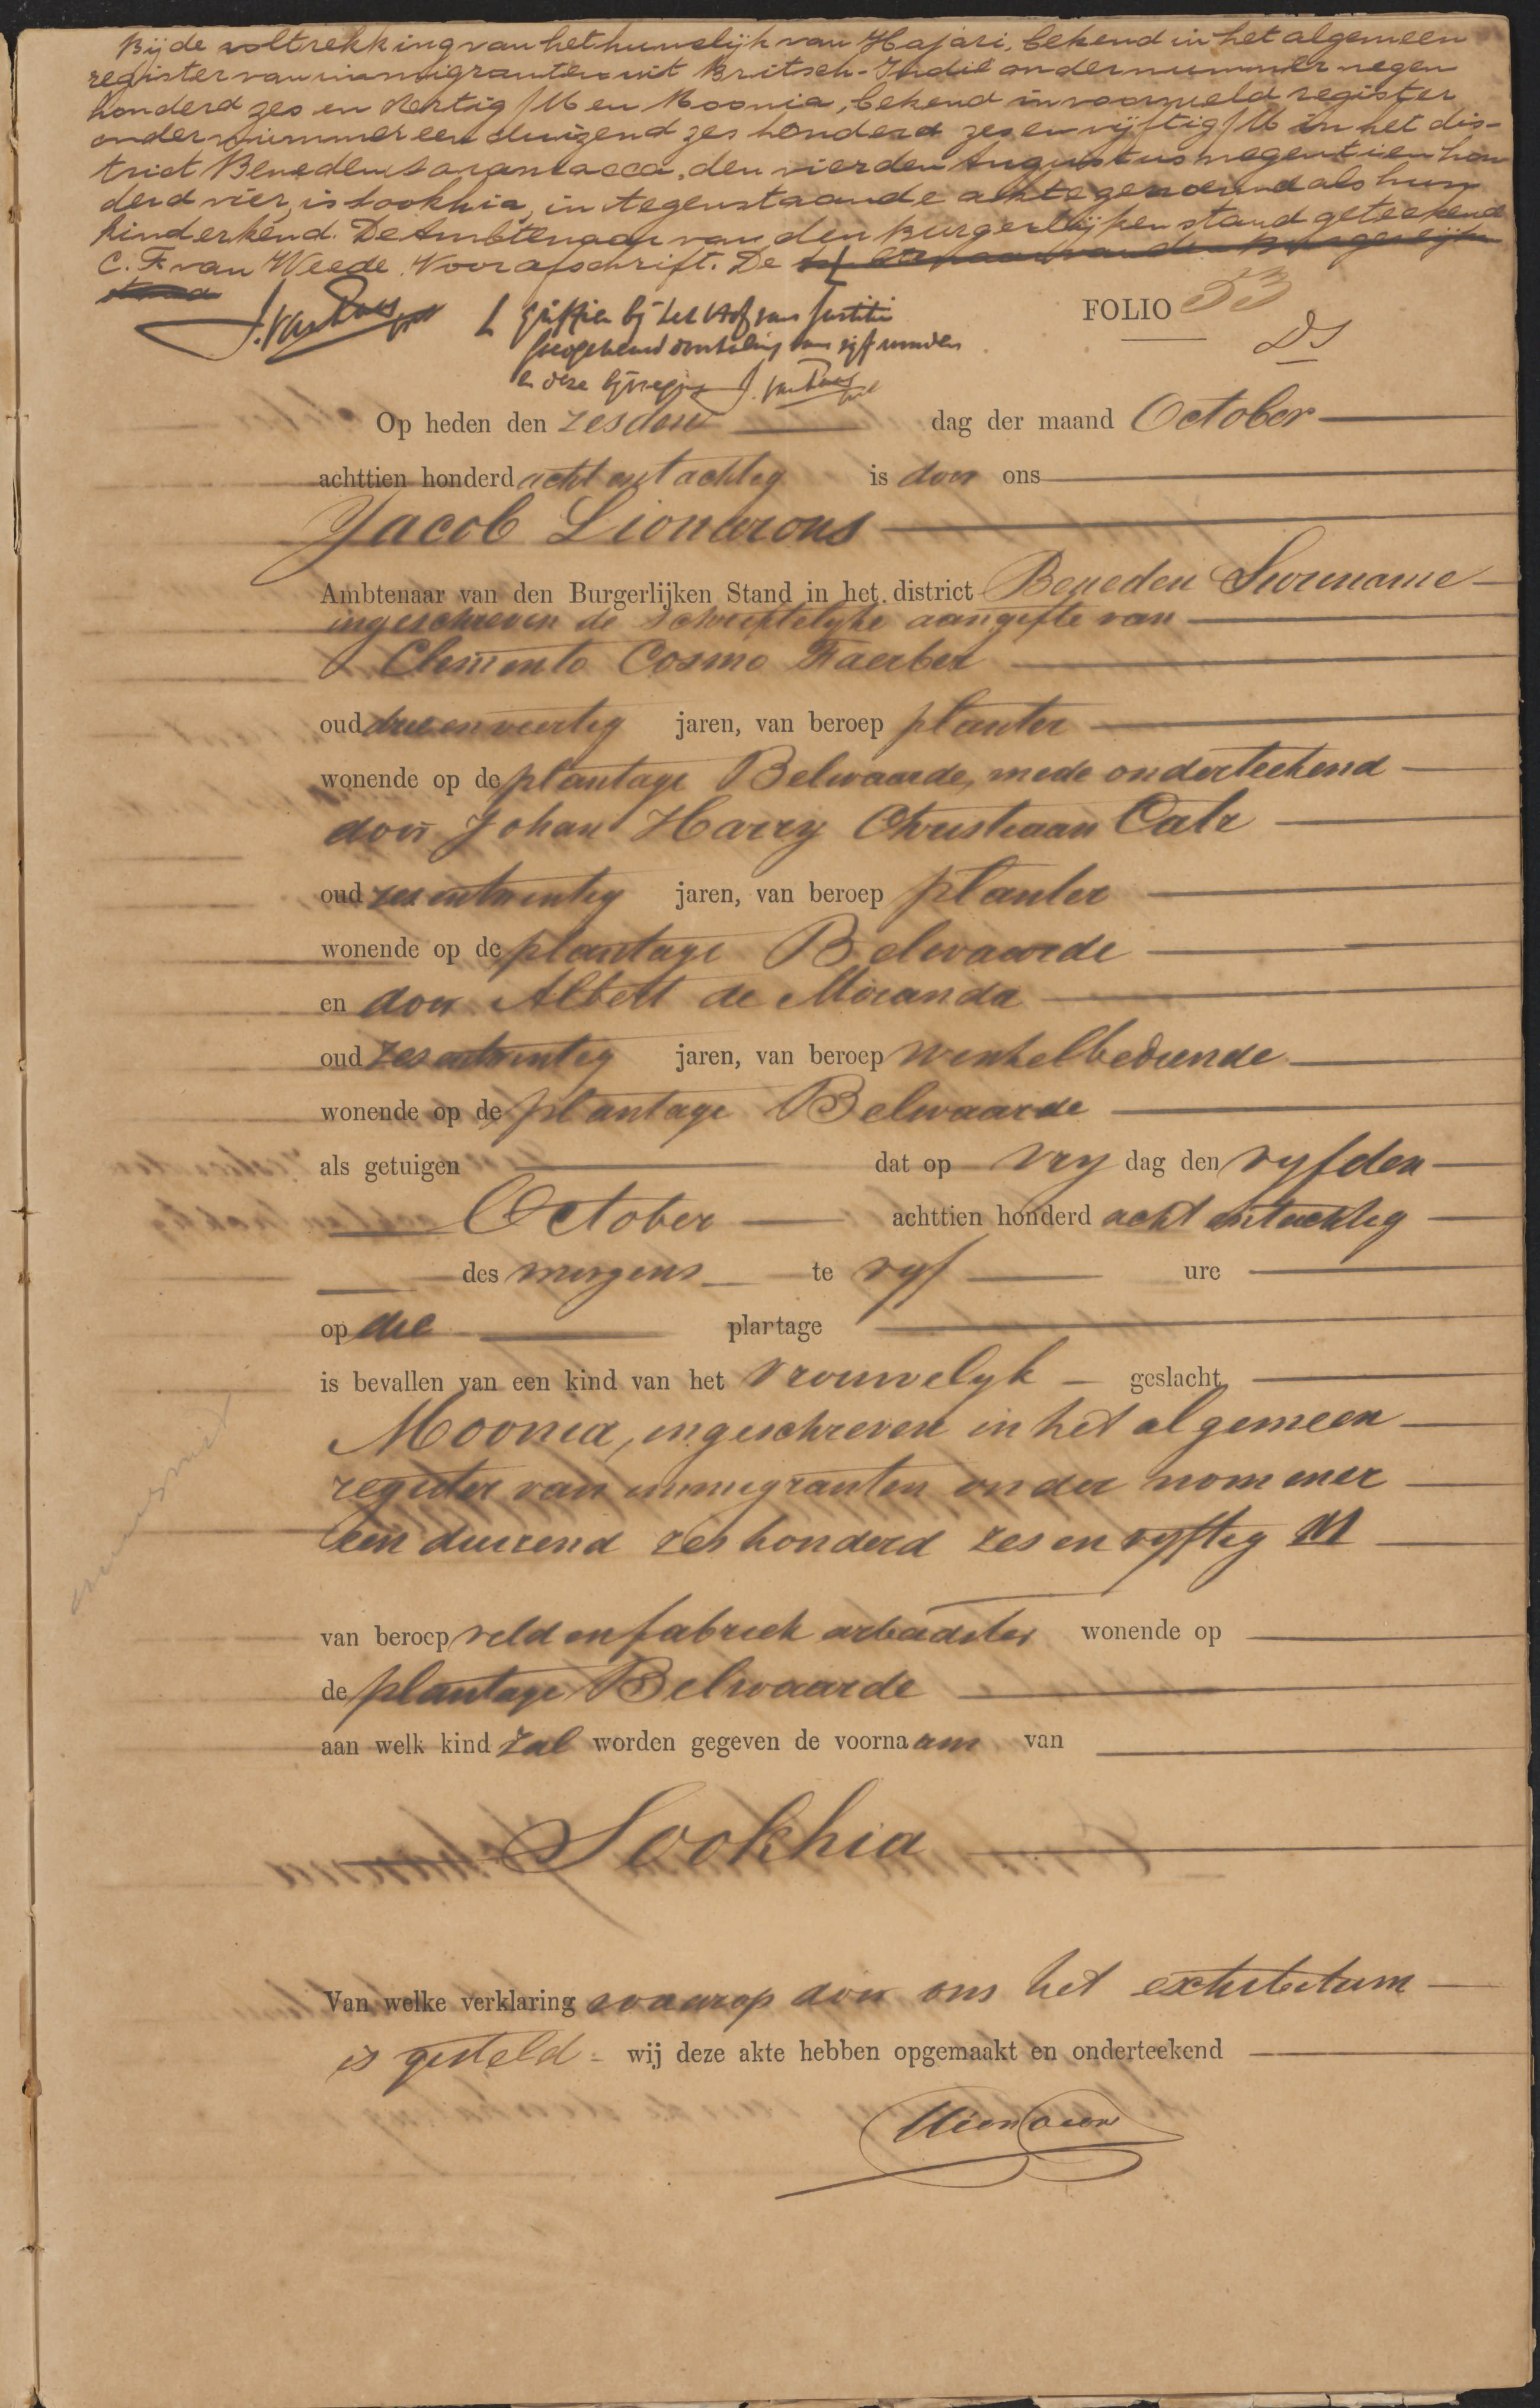 Bij de voltrekking van het huwelijk van Hajari, bekend in het algemeen
register van immigranten uit Britsch-Indië onder nummer negen
honderd zes en dertig /M en Moonia, bekend in voormeld register
onder nummer een duizend zes honderd zes en vijftig /M in het dis-
trict Beneden Saramacca, den vierden Augustus negentien hon
derd vier, is Sookhia, in tegenstaande akte genoemd als hun
kind erkend. De Ambtenaar van den Burgerlijken stand geteekend
C. F. van Weede. Voor afschrift. De Ambtenaar van den Burgerlijken
stand
Griffier bij het Hof van Justitie
Goedgekeurd doorhaling van vijf woorden
en deze bijvoeging
FOLIO 53
DS
Op heden den zesden dag der maand October
achttien honderd acht en tachtig is door ons
Jacob Lionarons
Ambtenaar van den Burgerlijken Stand in het district Beneden Suriname
ingeschreven de schriftelijke aangifte van
Clemento Cosmo Faerber
oud drie en veertig jaren, van beroep planter
wonende op de plantage Belwaarde, mede onderteekend
door Johan Harry Christiaan Calr
oud zes en twintig jaren, van beroep planter
wonende op de plantage Belwaarde
en door Albert de Miranda
oud zes en twintig jaren, van beroep winkelbediende
wonende op de plantage Belwaarde
als getuigen dat op vry dag den vyfden
October achttien honderd acht en tachtig
des morgens te vyf ure
op die plartage
is bevallen van een kind van het vrouwelyk geslacht
Moonia, ingeschreven in het algemeen
register van immigranten onder nommer
een duizend zes honderd zes en vyftig M
van beroep veld en fabriek arbeidster wonende op
de plantage Belwaarde
aan welk kind zal worden gegeven de voornaam van
Sookhia
Van welke verklaring waarop door ons het exhibitum
is gesteld wij deze akte hebben opgemaakt en onderteekend